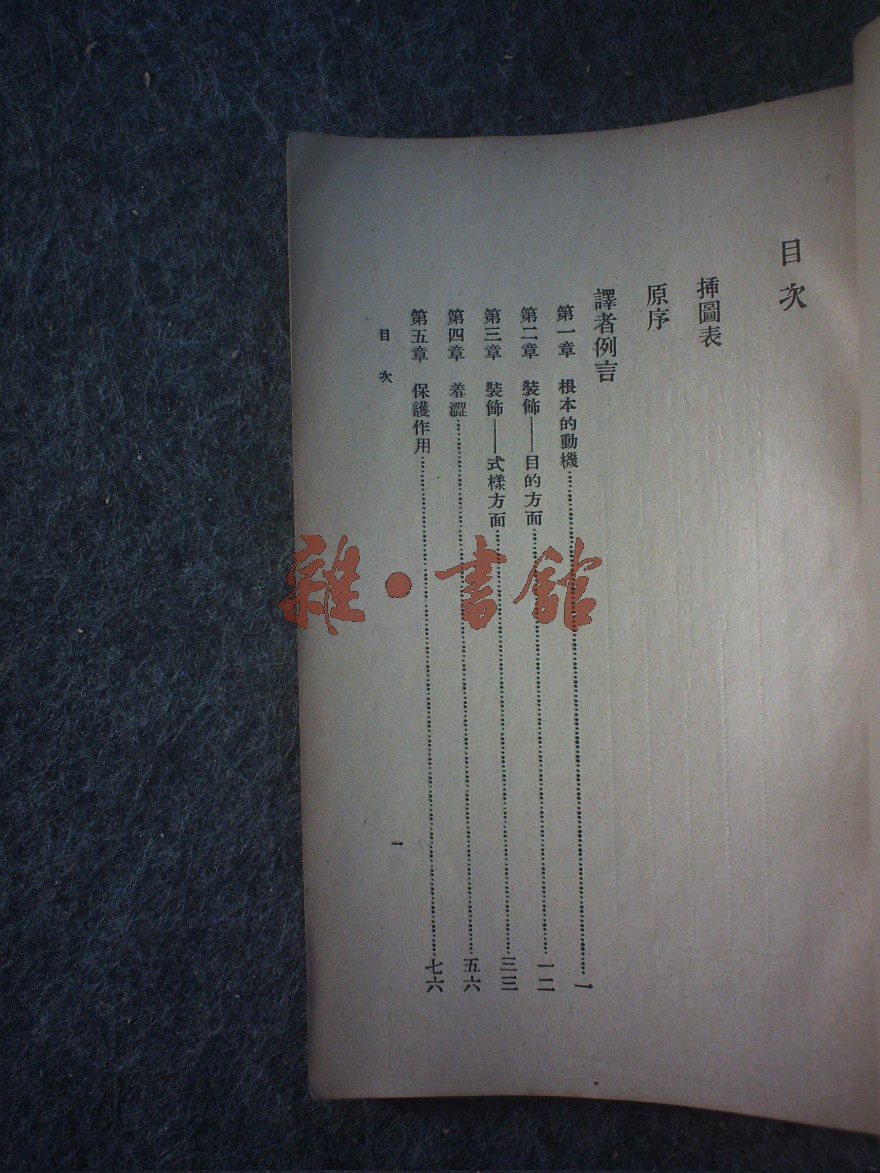 目次
挿圖表
原序
譯者例言
第一章 根本的動機……一
第二章 裝飾——目的方面……一二
第三章 裝飾——式樣方面……三三
第四章 羞澀……五六
第五章 保護作用……七六
目次 一
雜·書館